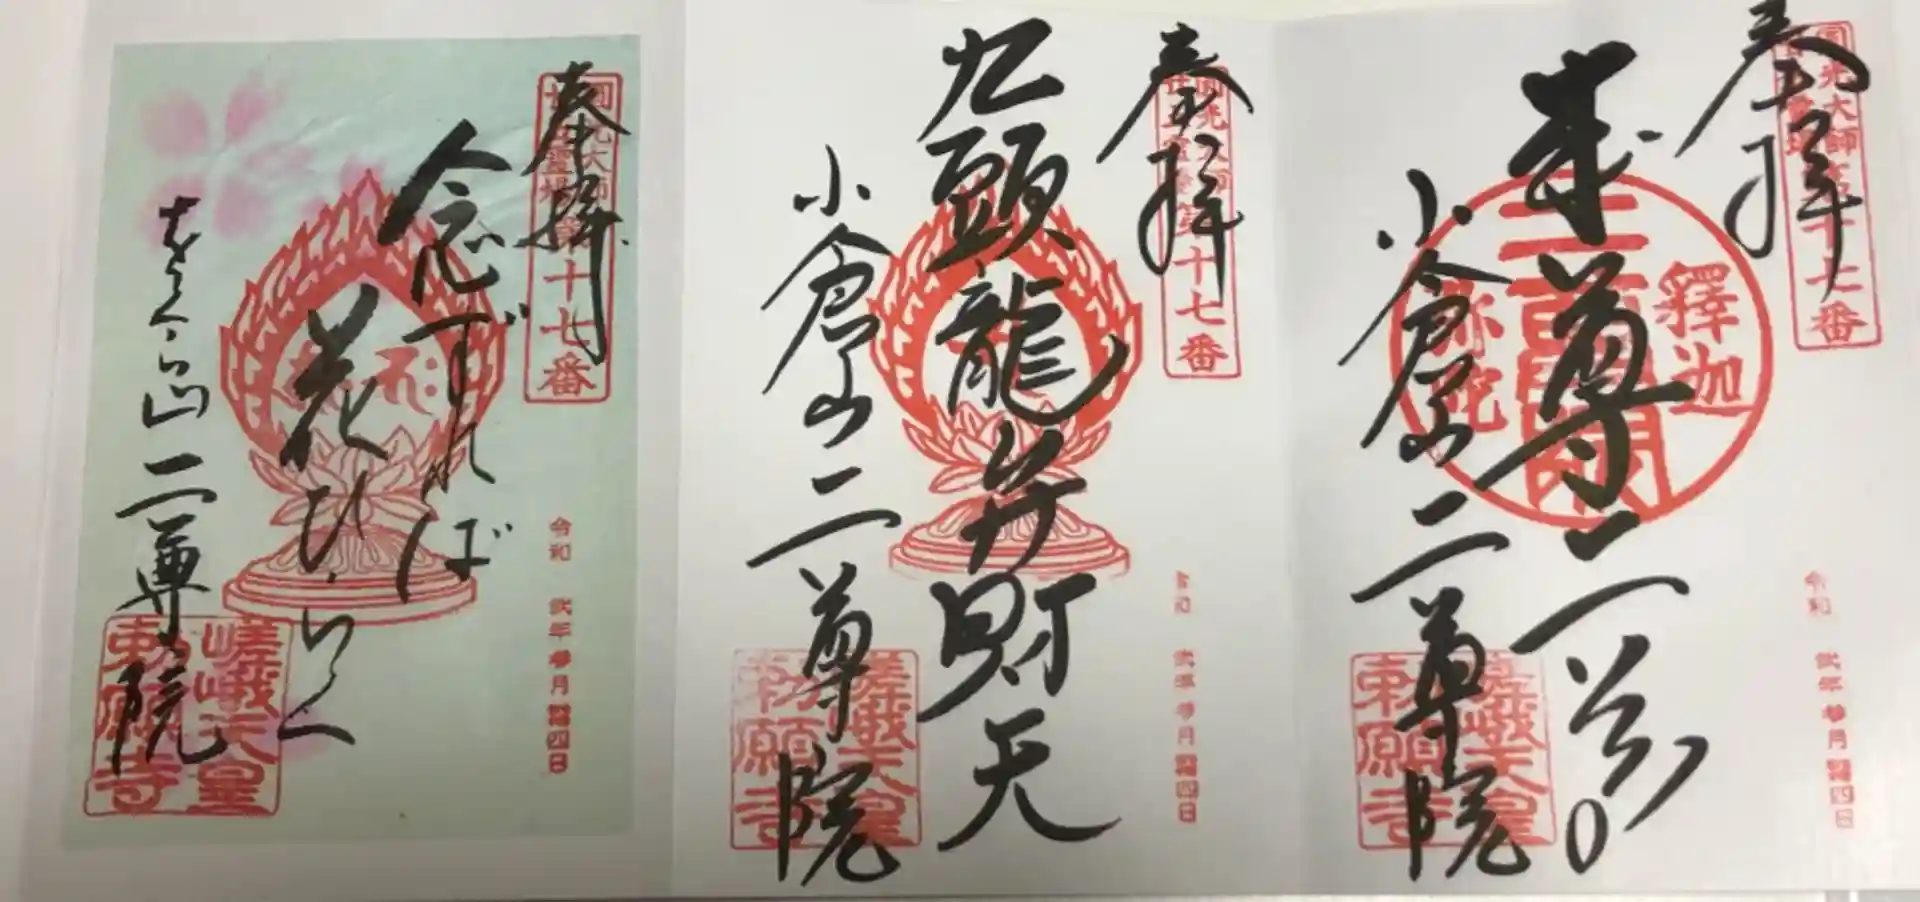 奉拝
圓光大師
本尊二尊
釋迦
弥陀
小倉山二尊院
嵯峨天皇
勅願寺
令和 弐年 参月 四日
奉拝
圓光大師
十七番
九頭龍弁財天
小倉山二尊院
嵯峨天皇
勅願寺
令和 弐年 参月 四日
奉拝
圓光大師
十七番
念ずれば
花ひらく
をぐら山二尊院
嵯峨天皇
勅願寺
令和 弐年 参月 四日